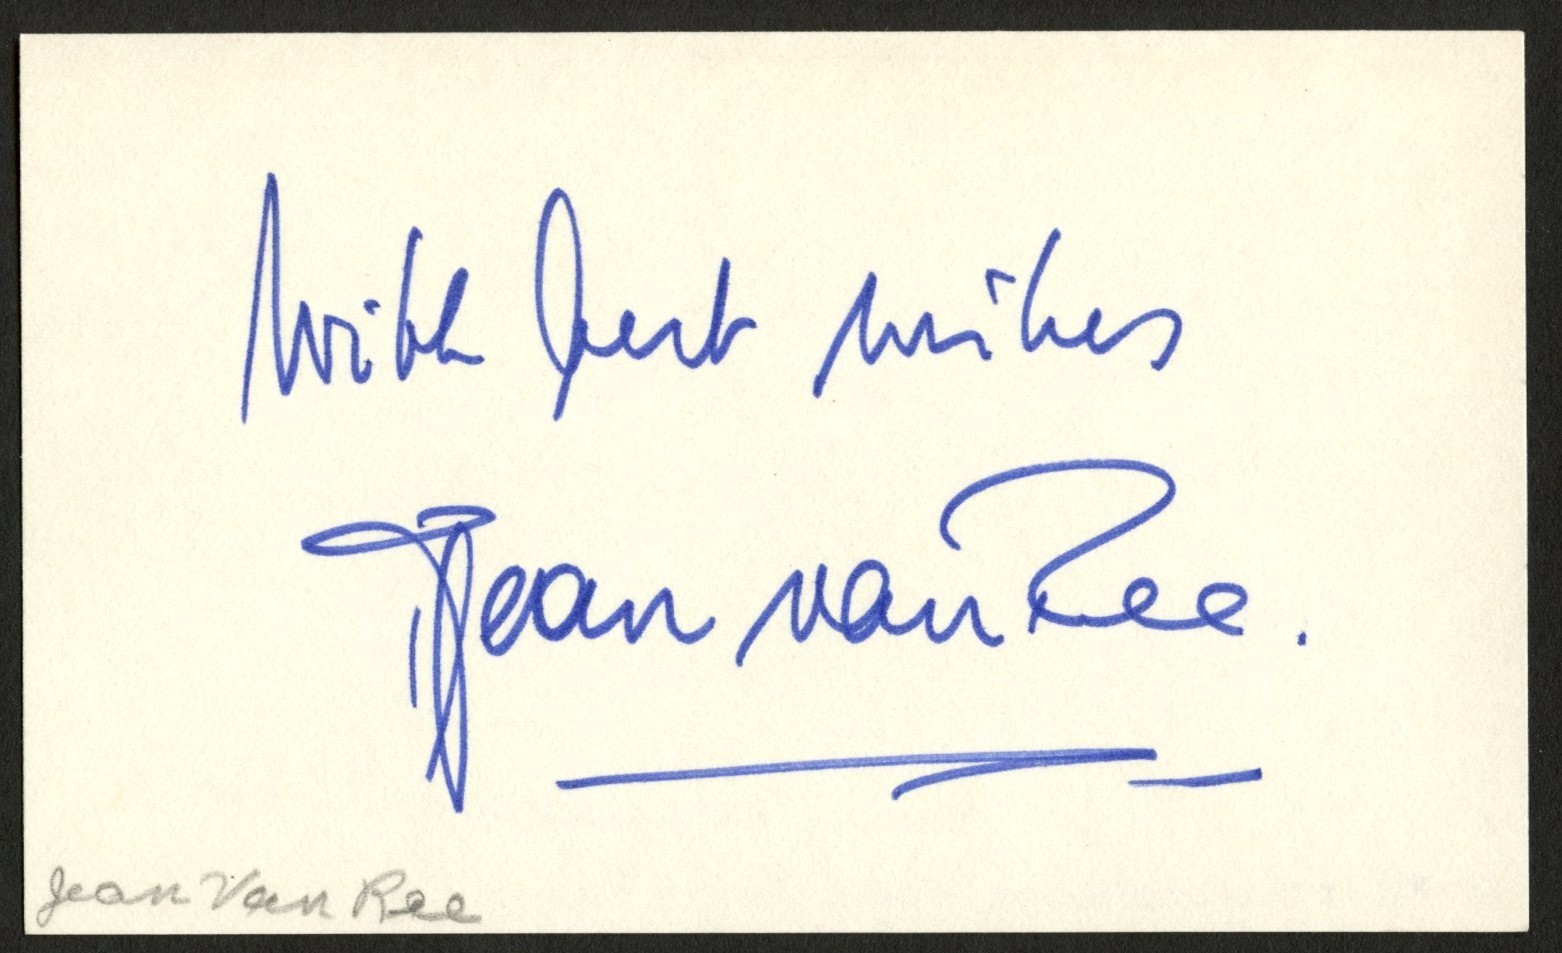 With best wishes
Jean van Ree.
Jean Van Ree